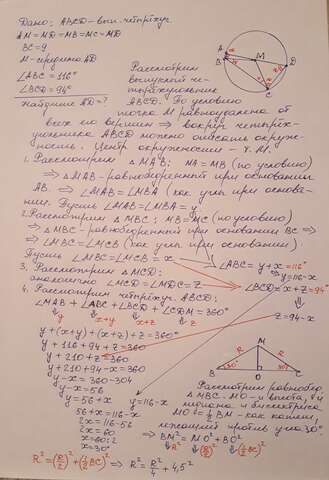 Дано: ABCD - вып. четырёхуг.
AM = MD = MB = MC - MD
BC = 9
M - середина AD
∠ABC = 116°
∠BCD = 94°
Найдите AD - ?
Рассмотрим
выпуклой че-
тырёхугольник
ABCD. По условию
точка M равноудалена от
всех его вершин ⇒ вокруг четырёх-
угольника ABCD можно описать окруж-
ность. Центр окружности - т. M.
1. Рассмотрим △MAB; MA = MB (по условию)
⇒ △MAB - равнобедренный при основании
AB. ⇒ ∠MAB = ∠MBA (как углы при основа-
нии. Пусть ∠MAB = ∠MBA = y
2. Рассмотрим △MBC; MB = MC (по условию)
⇒ △MBC - равнобедренный при основании BC ⇒
⇒ ∠MBC = ∠MCB (как углы при основании)
Пусть ∠MBC = ∠MCB = x
∠ABC = y + x = 116°
y = 116 - x
3. Рассмотрим △MCD;
аналогично ∠MCD = ∠MDC = z
∠BCD = x + z = 94°
z = 94 - x
4. Рассмотрим четырёхуг. ABCD:
∠MAB + ∠ABC + ∠BCD + ∠CDM = 360°
y x+y x+z z
y + (x+y) + (x+z) + z = 360°
y + 116 + 94 + z = 360
y + 210 + z = 360
y + 210 + 94 - x = 360
y - x = 360 - 304
y - x = 56
y = 56 + x
y = 116 - x
56 + x = 116 - x
2x = 116 - 56
2x = 60
x = 60 : 2
x = 30°
A
B
C
D
M
M
R
R
30°
30°
B
O
C
Рассмотрим равнобед.
△MBC. MO - и высота, и
медиана и биссектриса
MO = ½ BM - как катет,
лежащий против угла 30°
⇒ BM² = MO² + BO²
R² (R/2)² (½BC)²
R² = (R/2)² + (½BC)² ⇒ R² = R²/4 + 4,5²